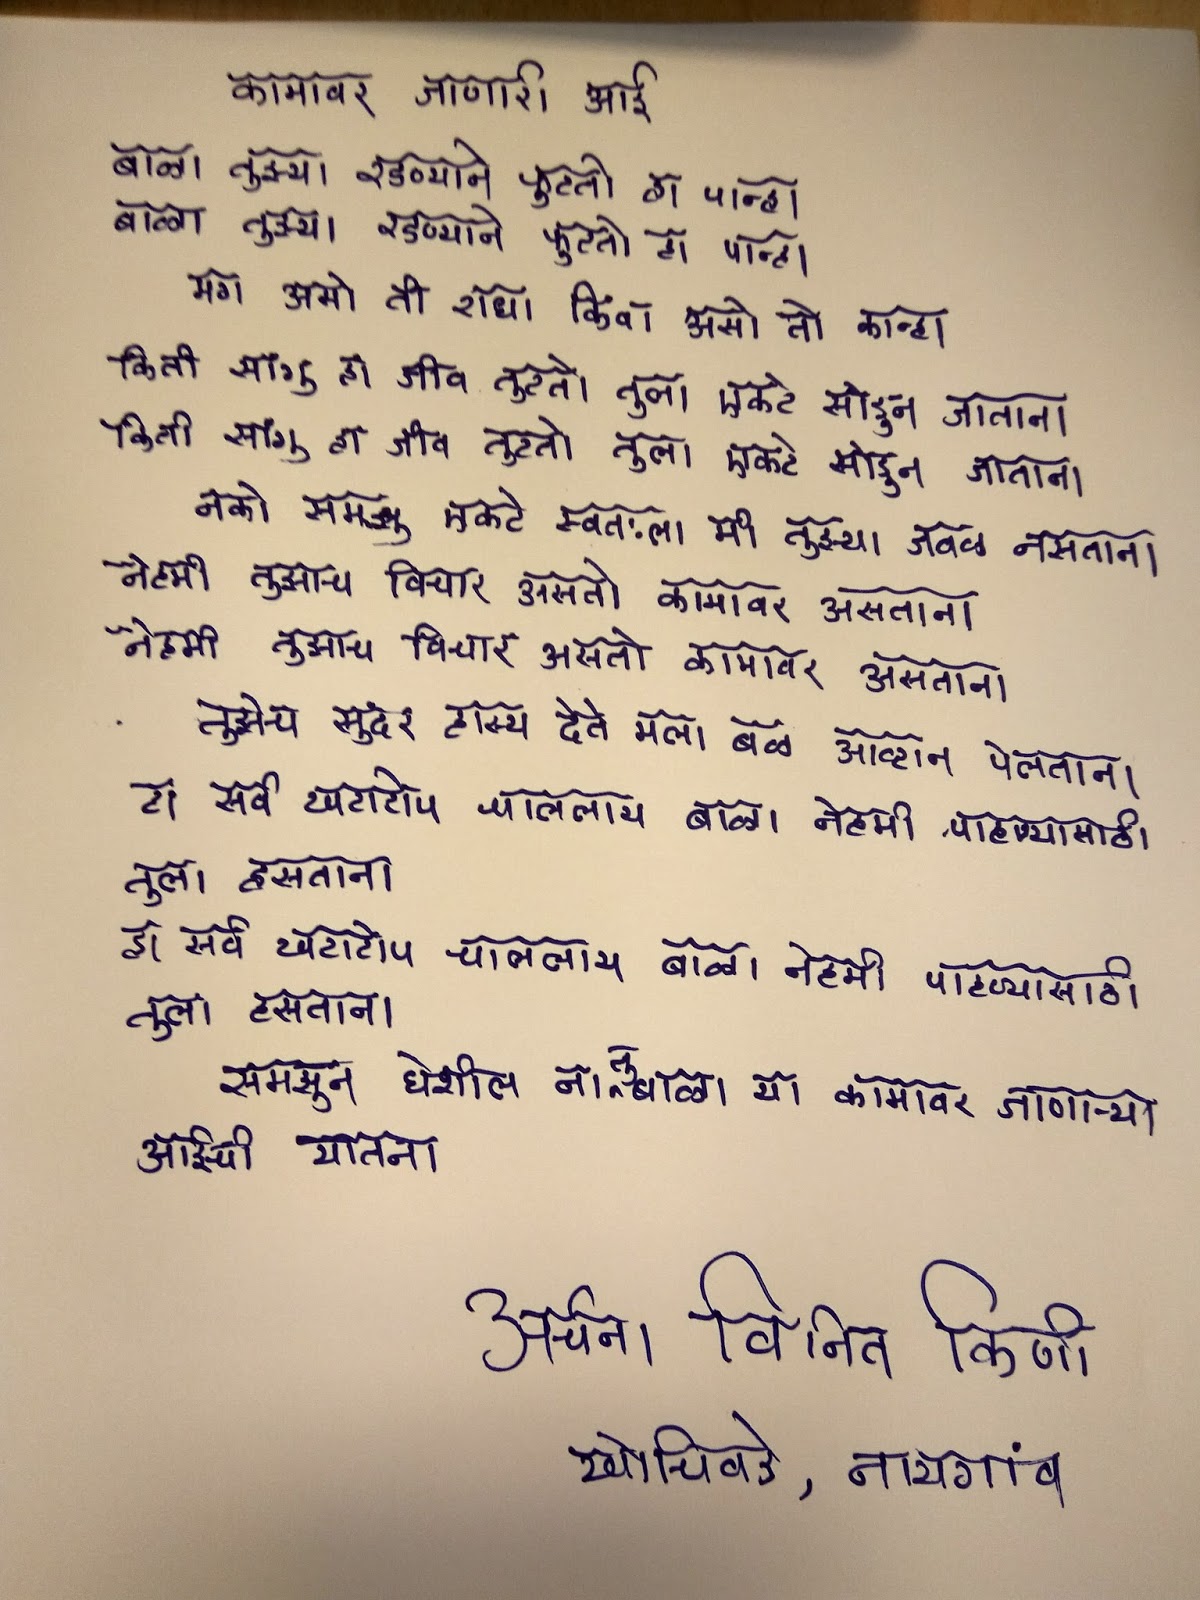 कामावर जाणारी आई
बाळा तुझ्या रडण्याने फुटतो हा पान्हा
बाळा तुझ्या रडण्याने फुटतो हा पान्हा
मग असो ती राधा किंवा असो तो कान्हा
किती सांगु हा जीव तुटतो तुला एकटे सोडुन जाताना
किती सांगु हा जीव तुटतो तुला एकटे सोडुन जाताना
नको समझु एकटे स्वतःला मी तुझ्या जवळ नसताना
नेहमी तुझाच विचार असतो कामावर असताना
नेहमी तुझाच विचार असतो कामावर असताना
तुझेच सुदंर हास्य देते मला बळ आव्हान पेलताना
हा सर्व खटाटोप चाललाय बाळा नेहमी पाहण्यासाठी
तुला हसताना
हा सर्व खटाटोप चाललाय बाळा नेहमी पाहण्यासाठी
तुला हसताना
समझुन घेशील ना तु बाळा या कामावर जाणाऱ्या
आईची यातना
अर्चना विनित किणी
खोचिवडे, नायगांव